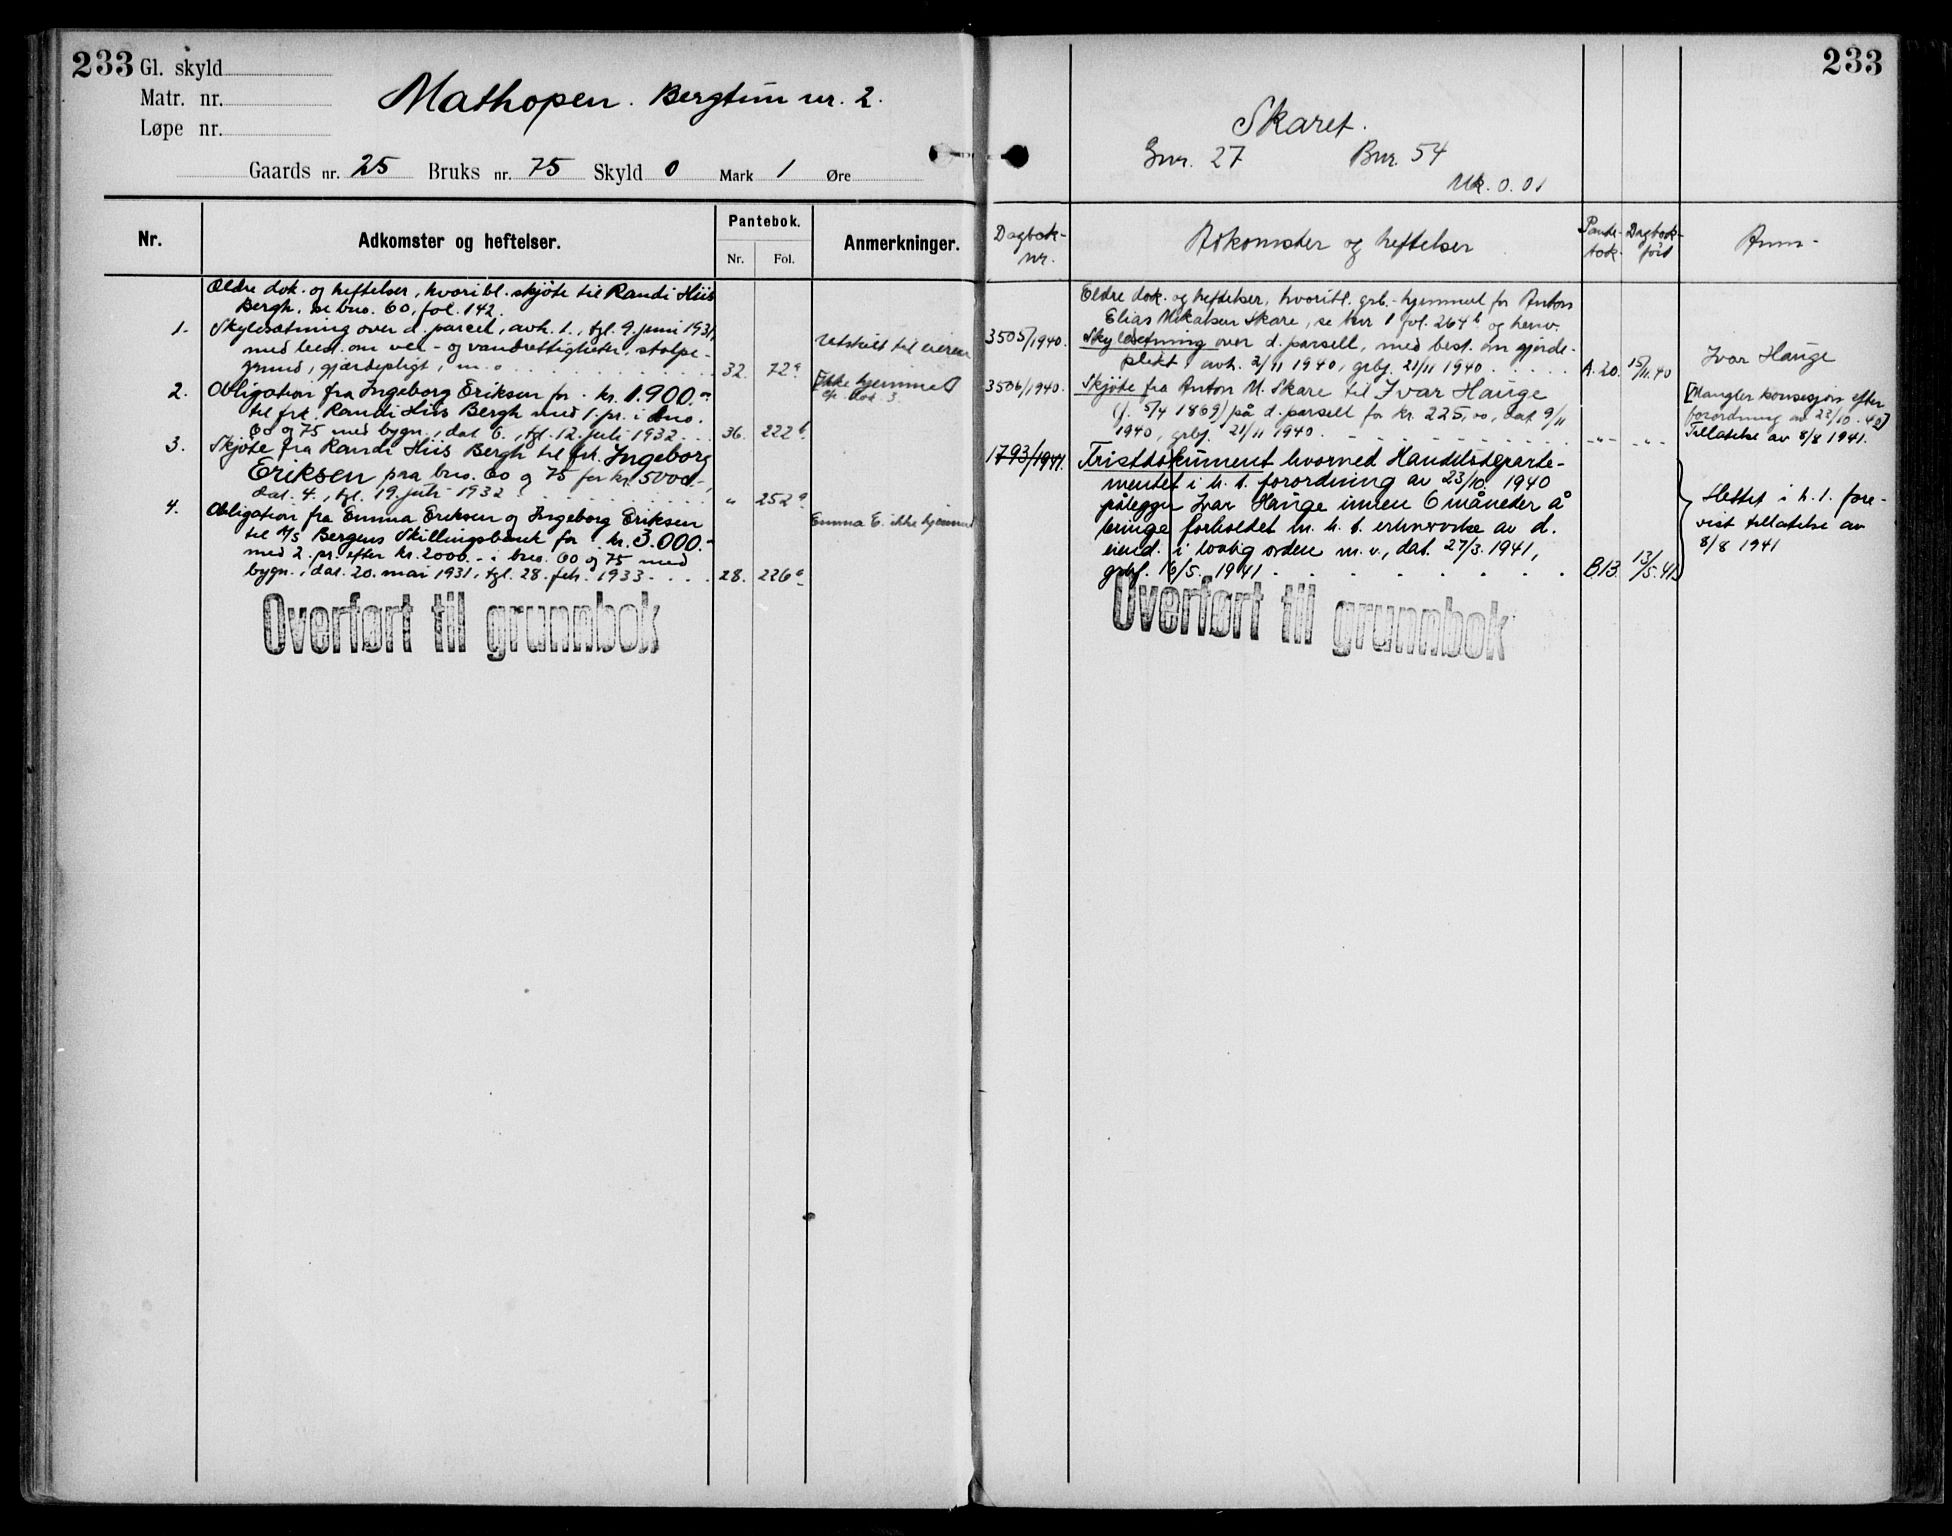 233 Gl. skyld
Matr. nr.
Løpe nr.
Mathopen. Bergtun nr. 2.
Gaards nr. 25 Bruks nr. 75 Skyld 0 Mark 1 Øre
Nr. Adkomster og heftelser. Pantebok. Nr. Fol. Anmerkninger.
Ældre dok. og heftelser, hvoribl. skjøte til Randi Hiis
Bergh, se bno. 60, fol. 142.
1. Skyldsætning over d. parcel, avh. 1., tgl. 9. juni 1931,
med best. om vei- og vandrettigheter, stolpe-
grund, gjærdepligt, m. 32. 72a Utskilt til eieren
2. Obligation fra Ingeborg Eriksen for kr. 1.900.-
til frk. Randi Hiis Bergh med 1. pr. i bno.
60 og 75 med bygn., dat. 6., tgl. 12. juli 1932 . . . 36. 222b. [Ikke hjemmel]
cfr. dok. 3.
3. Skjøte fra Randi Hiis Bergh til frk. Ingeborg
Eriksen paa bno. 60 og 75 for kr. 5000.-,
dat. 4., tgl. 19. juli 1932 . . . " 252a
4. Obligation fra Emma Eriksen og Ingeborg Eriksen
til A/S Bergens Skillingsbank for kr. 3.000.-
med 2. pr. efter kr. 2000.- i bno. 60 og 75 med
bygn., dat. 20. mai 1931, tgl. 28. feb. 1933 . . . . 28. 226a Emma E. ikke hjemmel
Overført til grunnbok
233
Skaret.
Gnr. 27 Bnr. 54
Mk. 0.01
Dagbok-nr. Adkomster og heftelser Pante-bok Dagbok-ført Anm-
Eldre dok. og heftelser, hvoribl. grb.-hjemmel for Anton
Elias Mikalsen Skare, se bnr 1 fol. 264b og henv.
3505/1940. Skyldsetning over d. parsell, med best. om gjerde-
plikt, avh. 2/11 1940, grbf. 21/11 1940 . . . . . A. 20. 15/11.40 Ivar Hauge
3506/1940. Skjøte fra Anton M. Skare til Ivar Hauge
(f. 5/4 1869) på d. parsell for kr. 225,00, dat 9/11
1940, grbf. 21/11 1940. - - - - - - - -"- -"- [Mangler konsesjon efter
forordning av 23/10-40]
Tillatelse av 8/8 1941.
1793/1941. Fristdokument hvorved Handelsdeparte-
mentet i h. t. forordning av 23/10 1940
pålegger Ivar Hauge innen 6 måneder å
bringe forholdet m. h. t. erhvervelse av d.
eiend. i lovlig orden m. v., dat. 27/3. 1941,
grbf. 16/5. 1941 . . . . . . B13. 13/5.41. Slettet i h. t. fore-
vist tillatelse av
8/8 1941
Overført til grunnbok